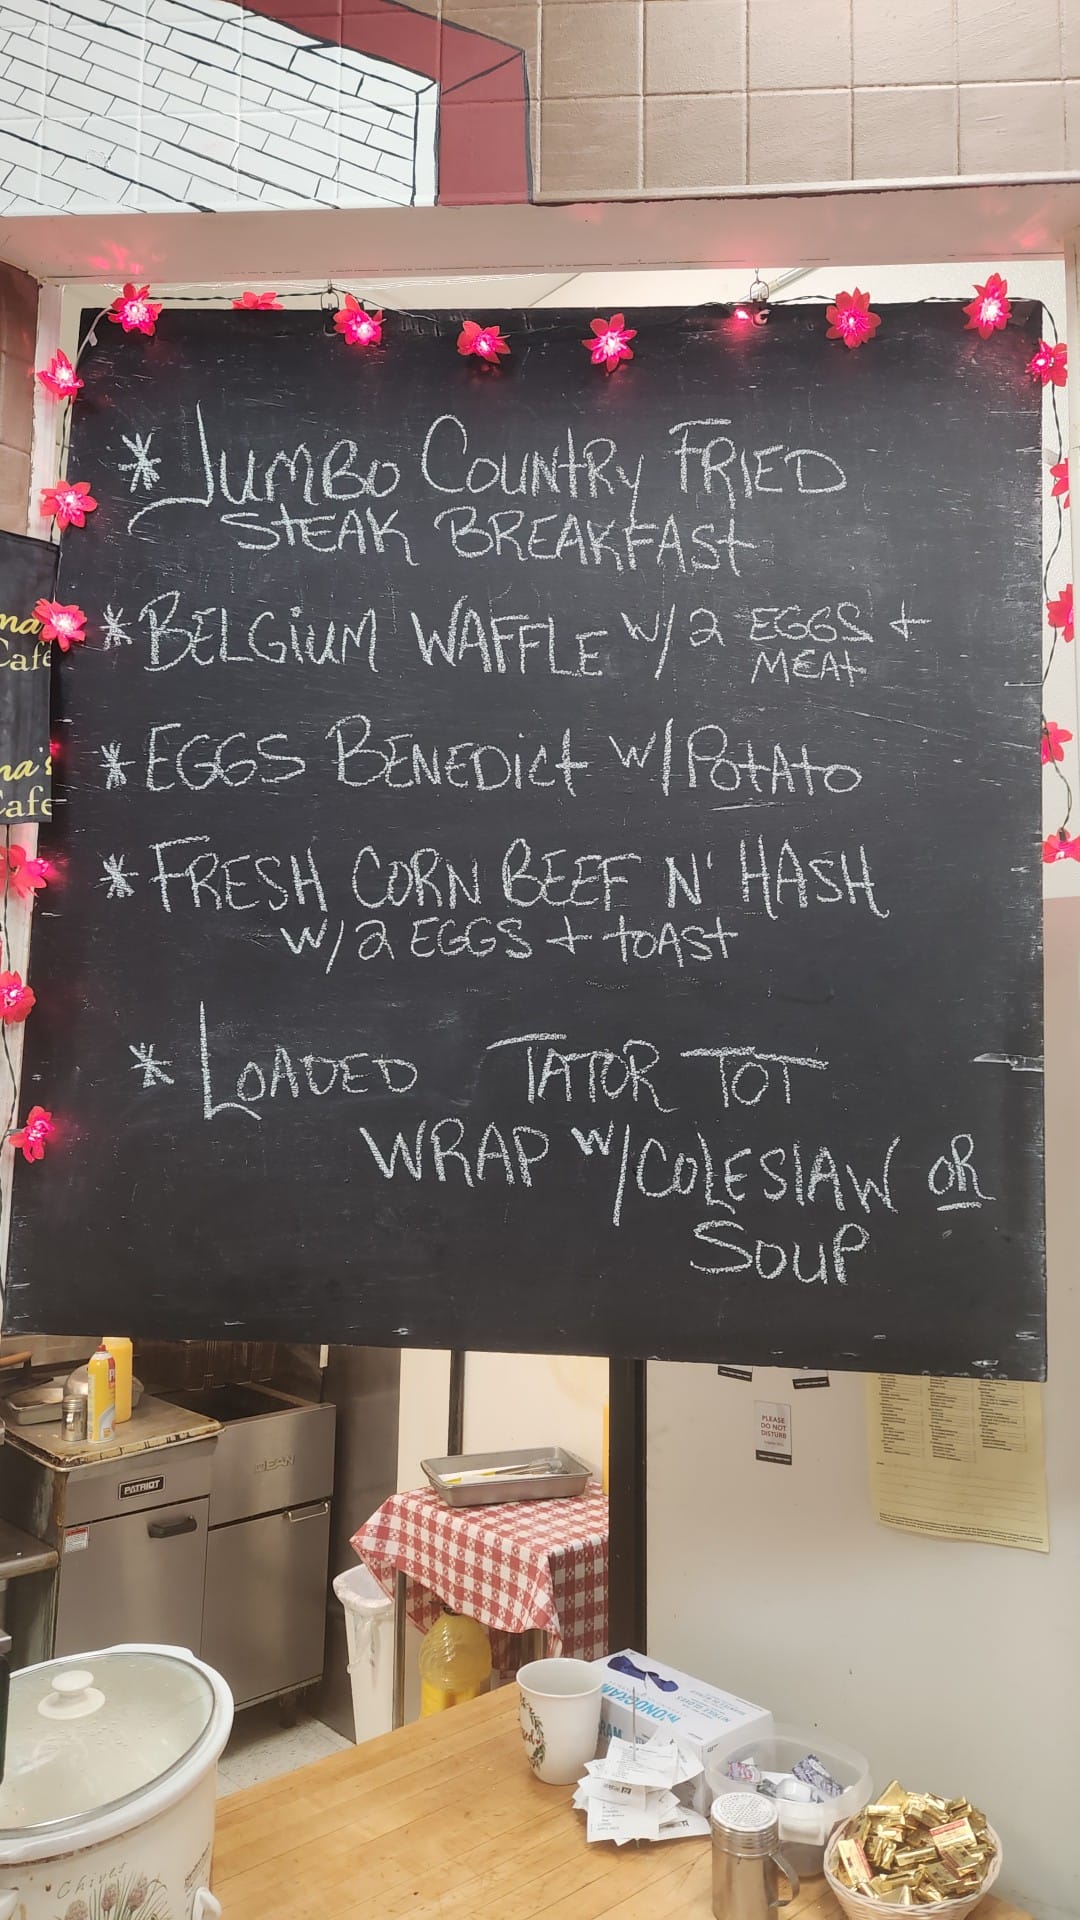 * Jumbo Country FRIED
STEAK BREAKFAST
* BELGiUM WAFFLE w/2 EGGS +
MEAT
* EGGS BENEDict w/POtAto
* FRESH CORN BEEF N' HASH
w/2 EGGS + toAST
* LOADED TATOR TOT
WRAP w/COLESlAW OR
SOUP
ma
Café
na's
Café
PATRIOT
DEAN
PLEASE
DO NOT
DISTURB
MONOGRAM
Chives